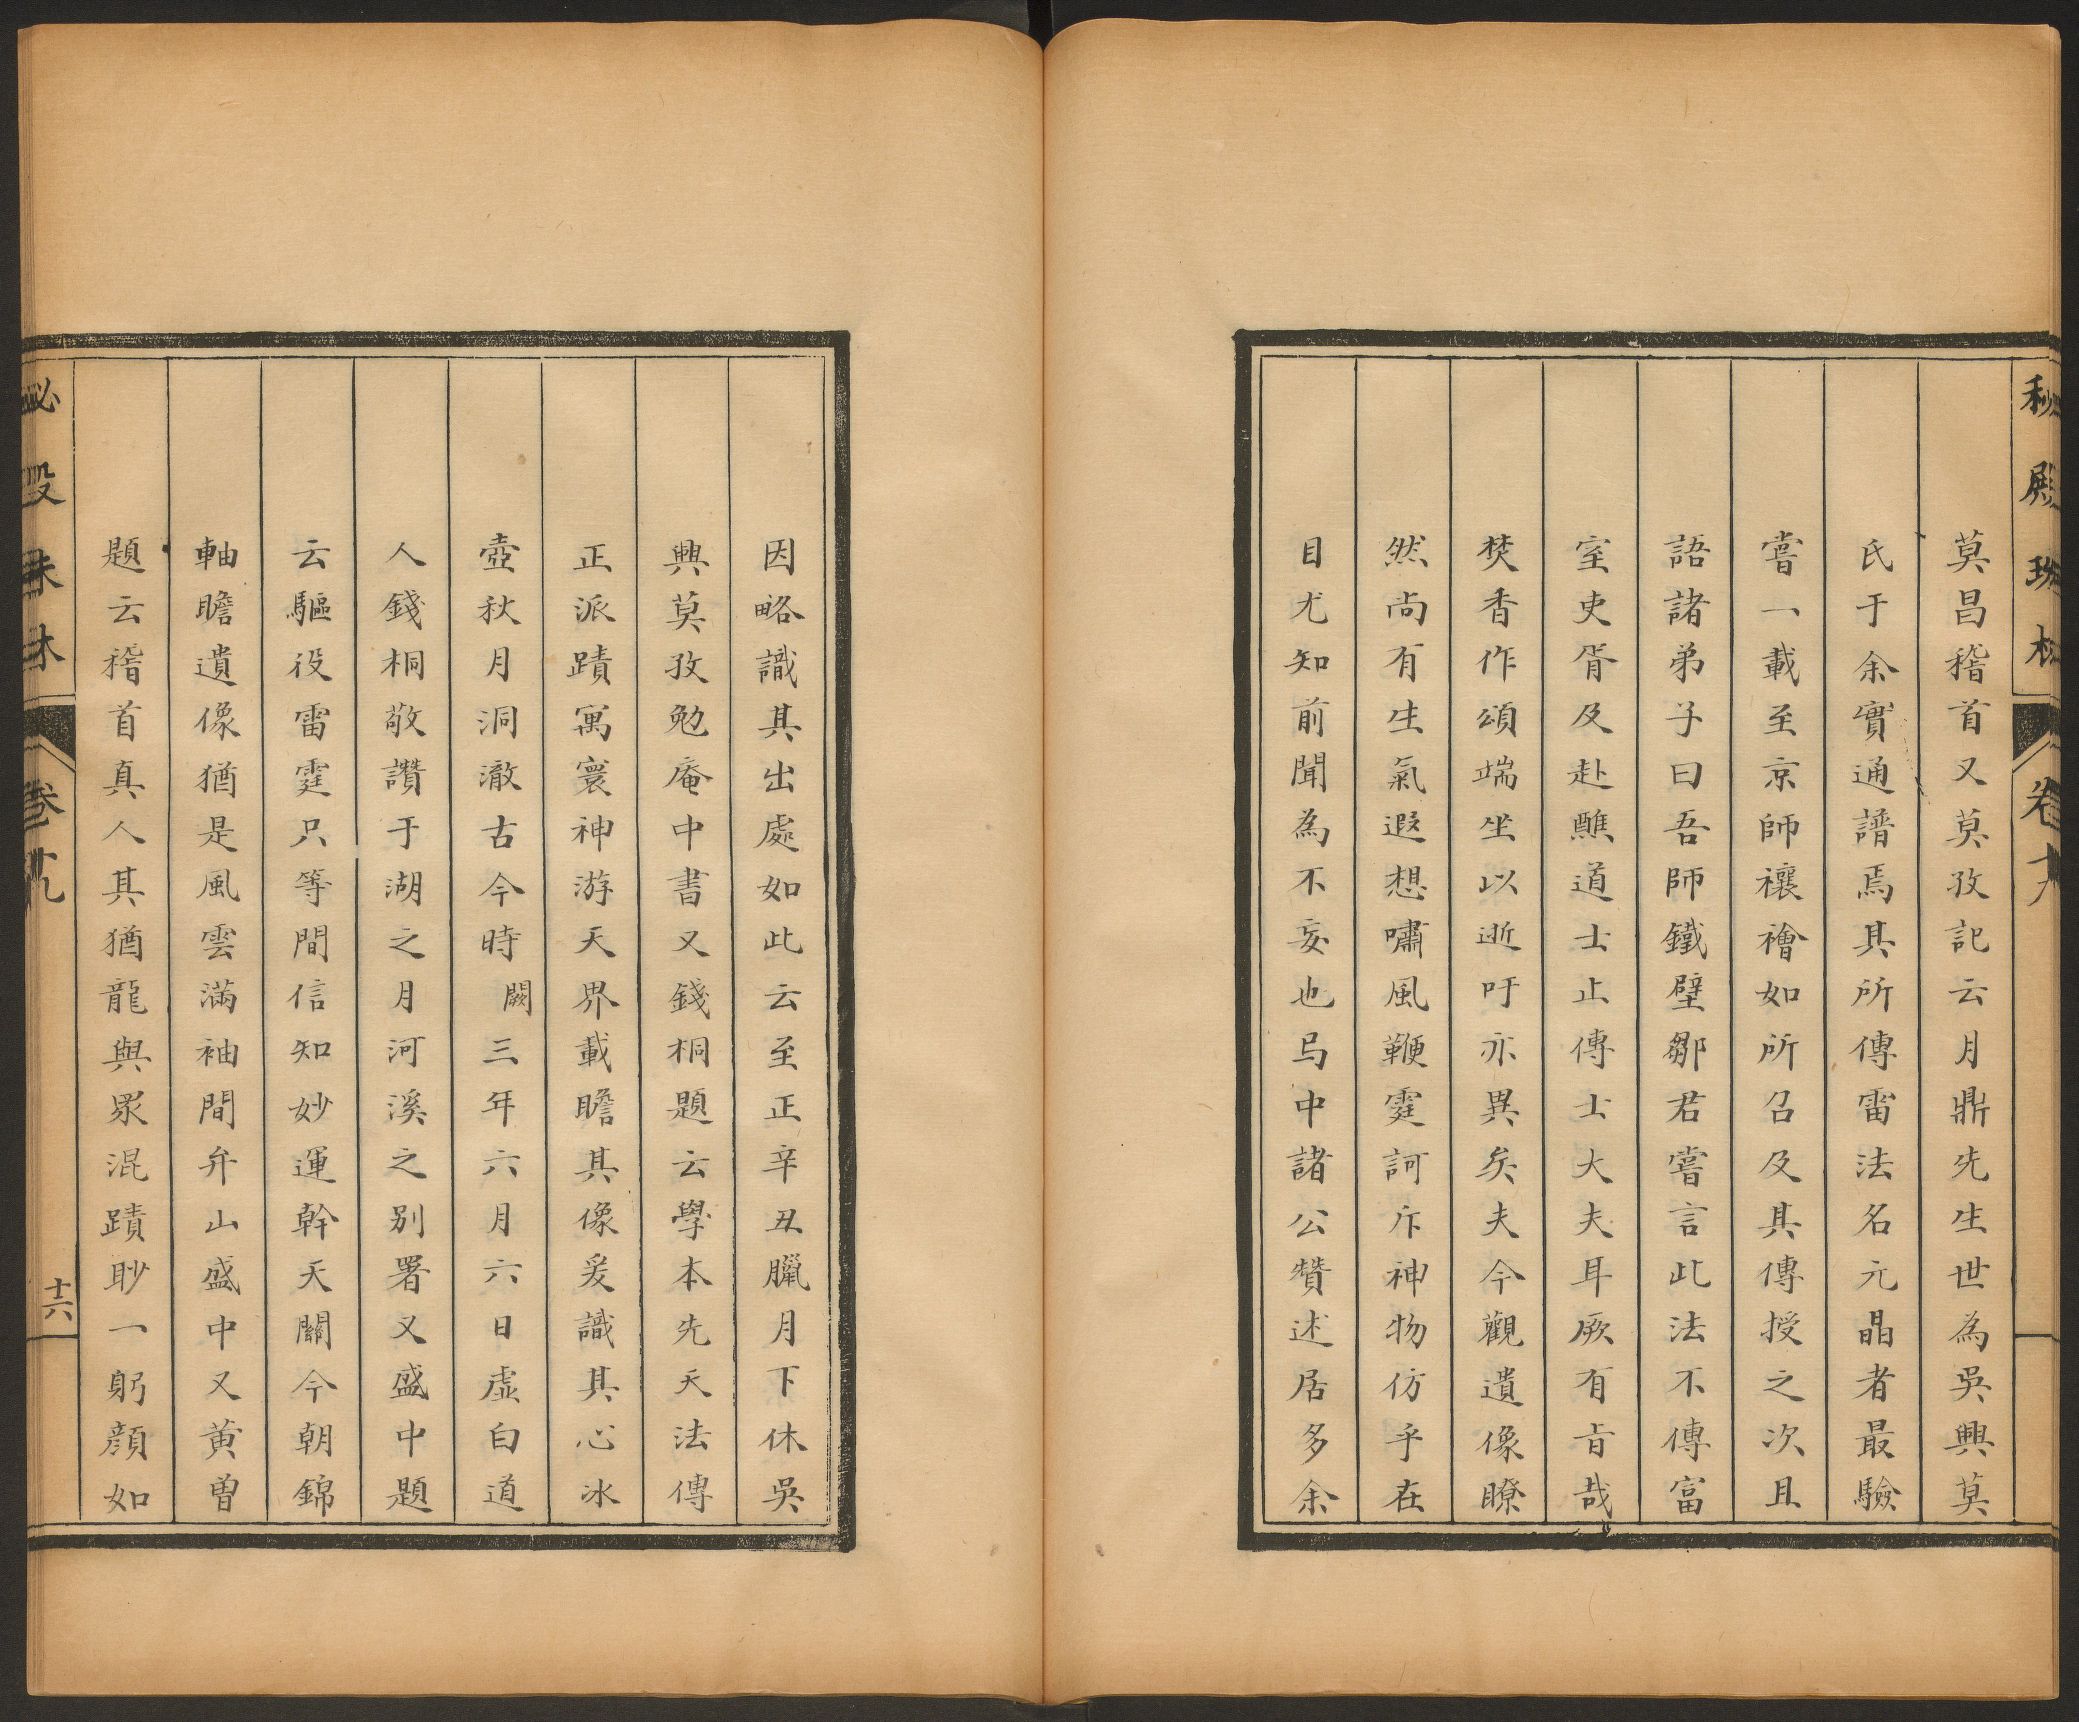 秘殿珠林
卷十九
莫昌稽首又莫孜記云月鼎先生世為吳興莫
氏于余實通譜焉其所傳雷法名元晶者最驗
嘗一載至京師禳禬如所召及其傳授之次且
語諸弟子曰吾師鐵壁鄒君嘗言此法不傳富
室吏胥及赴醮道士止傳士大夫耳厥有旨哉
焚香作頌端坐以逝吁亦異矣夫今觀遺像瞭
然尚有生氣遐想嘯風鞭霆訶斥神物仿乎在
目尤知前聞為不妄也㠯中諸公贊述居多余
因略識其出處如此云至正辛丑臘月下休吳
興莫孜勉庵中書又錢桐題云學本先天法傳
正派蹟寓寰神游天界載瞻其像爰識其心冰
壺秋月洞澈古今時闕三年六月六日虛白道
人錢桐敬讚于湖之月河溪之別署又盛中題
云驅役雷霆只等間信知妙運斡天關今朝錦
軸瞻遺像猶是風雲滿袖間弁山盛中又黃曾
題云稽首真人其猶龍與眾混蹟眇一躬顏如
秘殿珠林
卷十九
十六